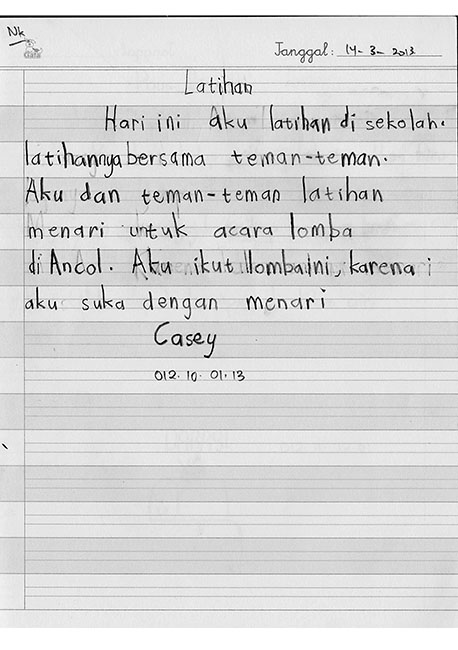 Nk
Tanggal: 14-3-2013
Latihan
Hari ini Aku latihan di sekolah.
latihannya bersama teman-teman.
Aku dan teman-teman latihan
menari untuk acara lomba
di Ancol. Aku ikut lomba ini, karena
aku suka dengan menari
Casey
012.10.01.13